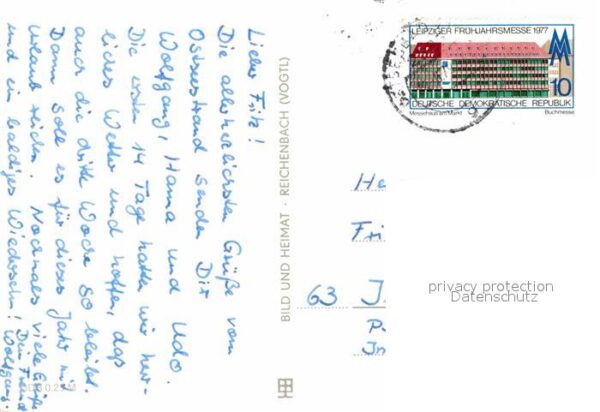 Lieber Fritz!
Die allerherzlichsten Grüße vom
Ostseestrand senden Dir
Wolfgang, Hanna und Udo.
Die ersten 14 Tage hatten wir herr-
liches Wetter und hoffen, daß
auch die dritte Woche so bleibt.
Dann soll es für dieses Jahr mit
Urlaub reichen. Nochmals viele Grüße
und ein baldiges Wiedersehn!
Dein Freund
Wolfgang.
BILD UND HEIMAT · REICHENBACH (VOGTL)
LEIPZIGER FRÜHJAHRSMESSE 1977
MM
10
DEUTSCHE DEMOKRATISCHE REPUBLIK
Messehaus am Markt Buchmesse
He
Fri
63 J
privacy protection
Datenschutz